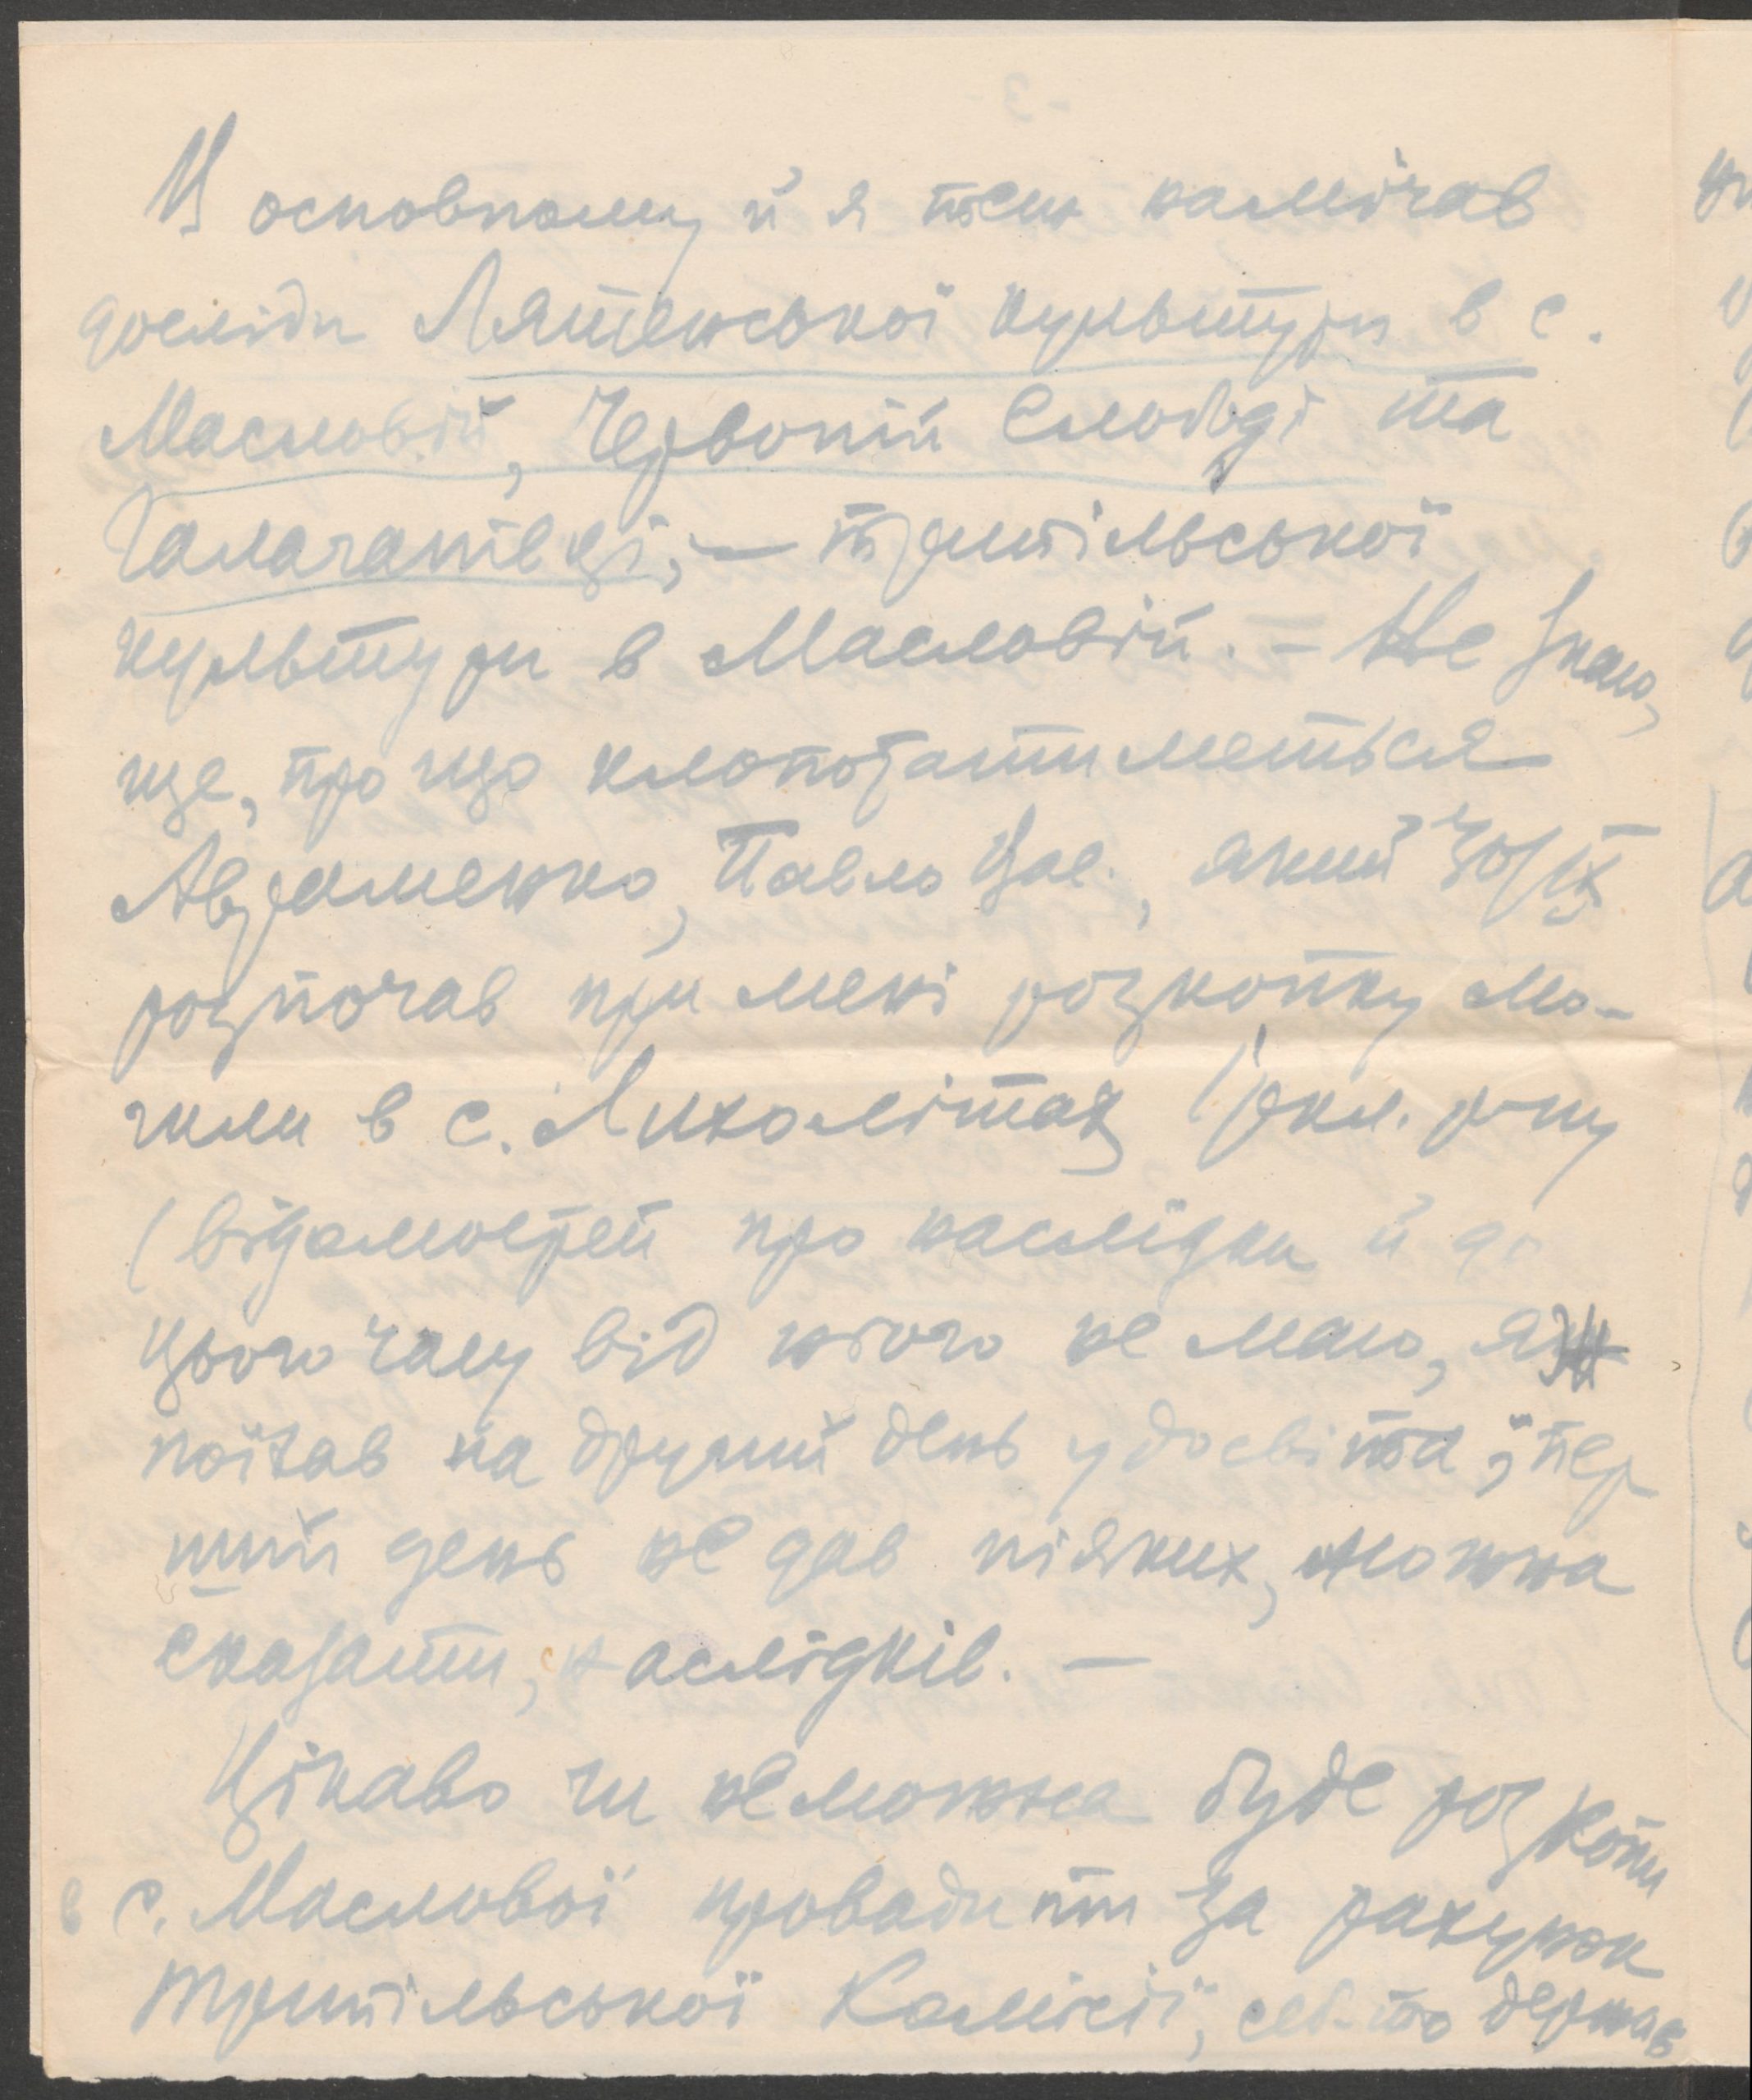 У основному й я теж намічав
досліди Лятенської культури в с.
Масловій, Червоній Слободі та
Галаганівці, — трипільської
культури в Масловій. – Не знаю,
ще, про що клопотатиметься
Авраменко, Павло Вас., який 30/IX
розпочав при мені розкопку мо-
гили в с. Лихолітах Іркл. р-ну
(відомостей про наслідки й до
цього часу від нього не маю, я
поїхав на другий день удосвіта; пер
ший день не дав ніяких, можна
сказати, наслідків. —
Цікаво чи не можна буде розкопи
в с. Маслової провадити за рахунок
Трипільської Комісії, себ-то держав